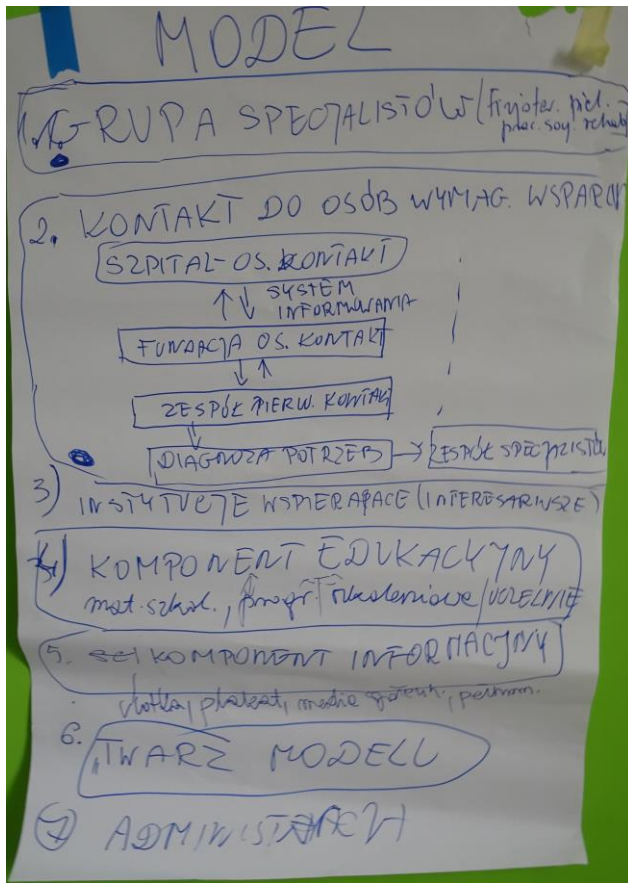 MODEL
1. GRUPA SPECJALISTÓW (fizjoter. piel.
prac. soc. rehab
2. KONTAKT DO OSÓB WYMAG. WSPARCI
SZPITAL-OS. KONTAKT
SYSTEM
INFORMOWANIA
FUNDACJA OS. KONTAKT
ZESPÓŁ PIERW. KONTAK
DIAGNOZA POTRZEB → ZESPÓŁ SPECJALISTÓ
3) INSTYTUCJE WSPIERAJĄCE (INTERESARIUSZE)
4) KOMPONENT EDUKACYJNY
mat. szkol., progr. szkoleniowe/UCZELNIE
5. KOMPONENT INFORMACYJNY
ulotka, plakat, media społeczn.,
6. "TWARZ MODELU
7 ADMINISTRACJA